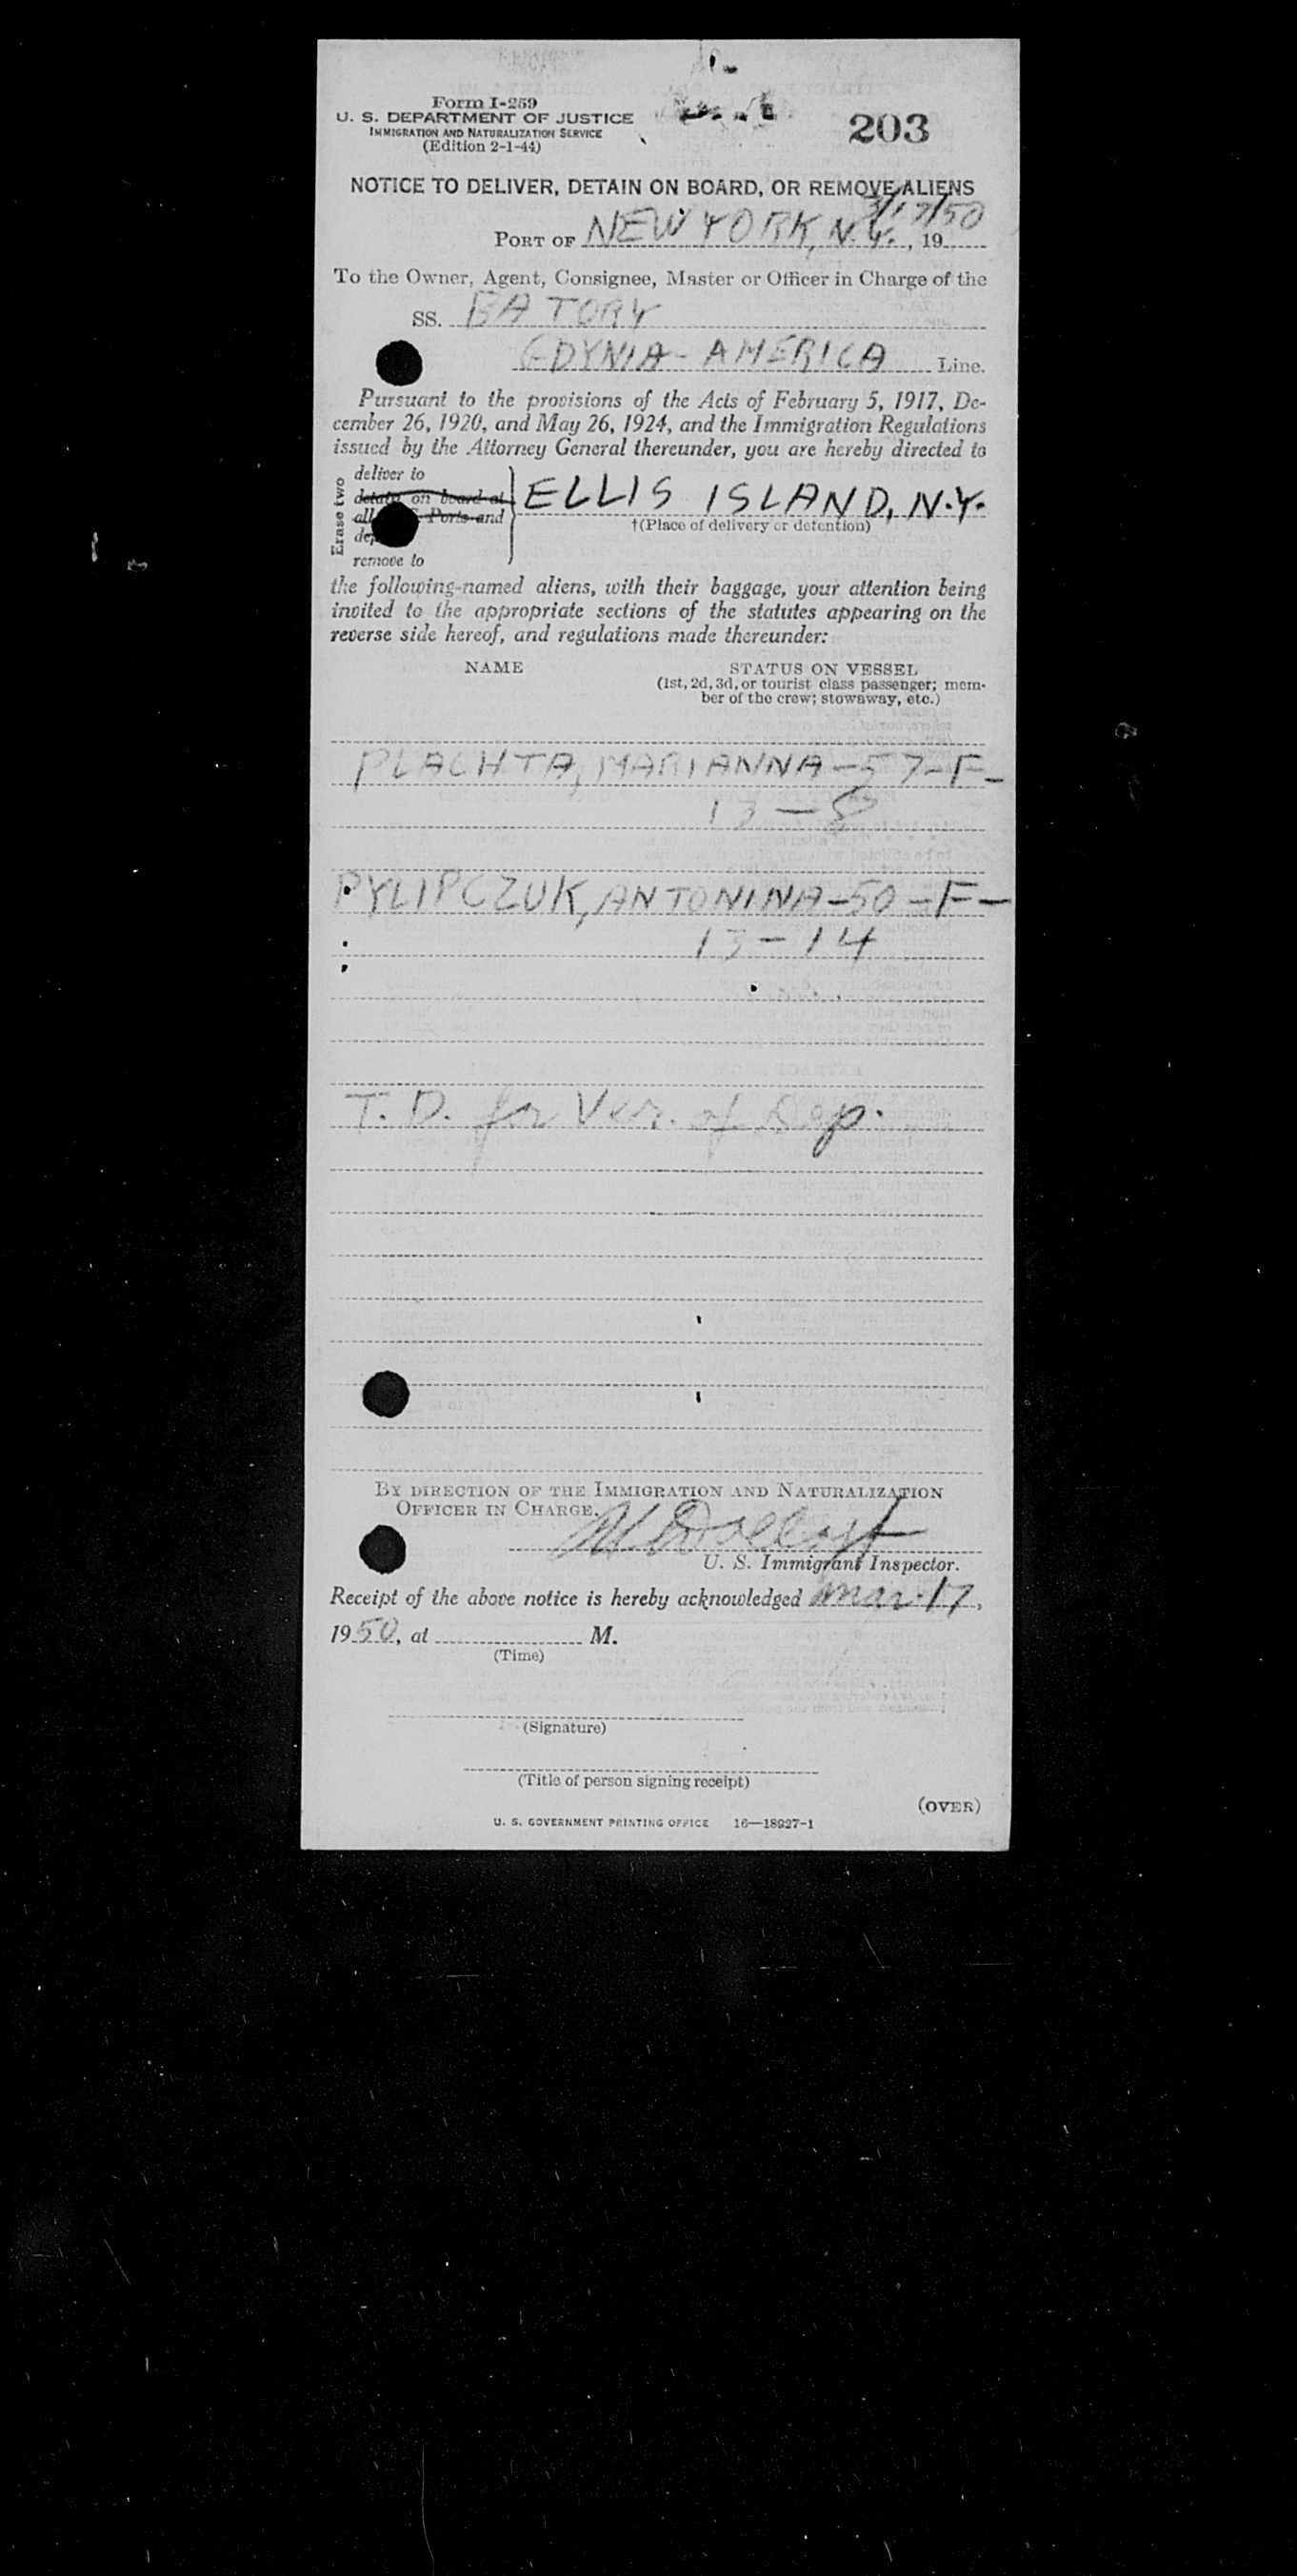 Form I-259
U. S. DEPARTMENT OF JUSTICE
IMMIGRATION AND NATURALIZATION SERVICE
(Edition 2-1-44)
203
NOTICE TO DELIVER, DETAIN ON BOARD, OR REMOVE ALIENS
3/17/50
PORT OF NEW YORK, N.Y., 19
To the Owner, Agent, Consignee, Master or Officer in Charge of the
SS. BATORY
GDYNIA - AMERICA Line.
Pursuant to the provisions of the Acts of February 5, 1917, De-
cember 26, 1920, and May 26, 1924, and the Immigration Regulations
issued by the Attorney General thereunder, you are hereby directed to
Erase two
deliver to
detain on board at
all Ports and
remove to
ELLIS ISLAND, N.Y.
†(Place of delivery or detention)
the following-named aliens, with their baggage, your attention being
invited to the appropriate sections of the statutes appearing on the
reverse side hereof, and regulations made thereunder:
NAME STATUS ON VESSEL
(1st, 2d, 3d, or tourist class passenger; mem-
ber of the crew; stowaway, etc.)
PLACHTA, MARIANNA - 57 - F -
13 - 8
PYLIPCZUK, ANTONINA - 50 - F -
13 - 14
T. D. for Ver. of Dep.
BY DIRECTION OF THE IMMIGRATION AND NATURALIZATION
OFFICER IN CHARGE.
U. S. Immigrant Inspector.
Receipt of the above notice is hereby acknowledged Mar. 17,
1950, at M.
(Time)
(Signature)
(Title of person signing receipt)
(OVER)
U. S. GOVERNMENT PRINTING OFFICE 16—18927-1